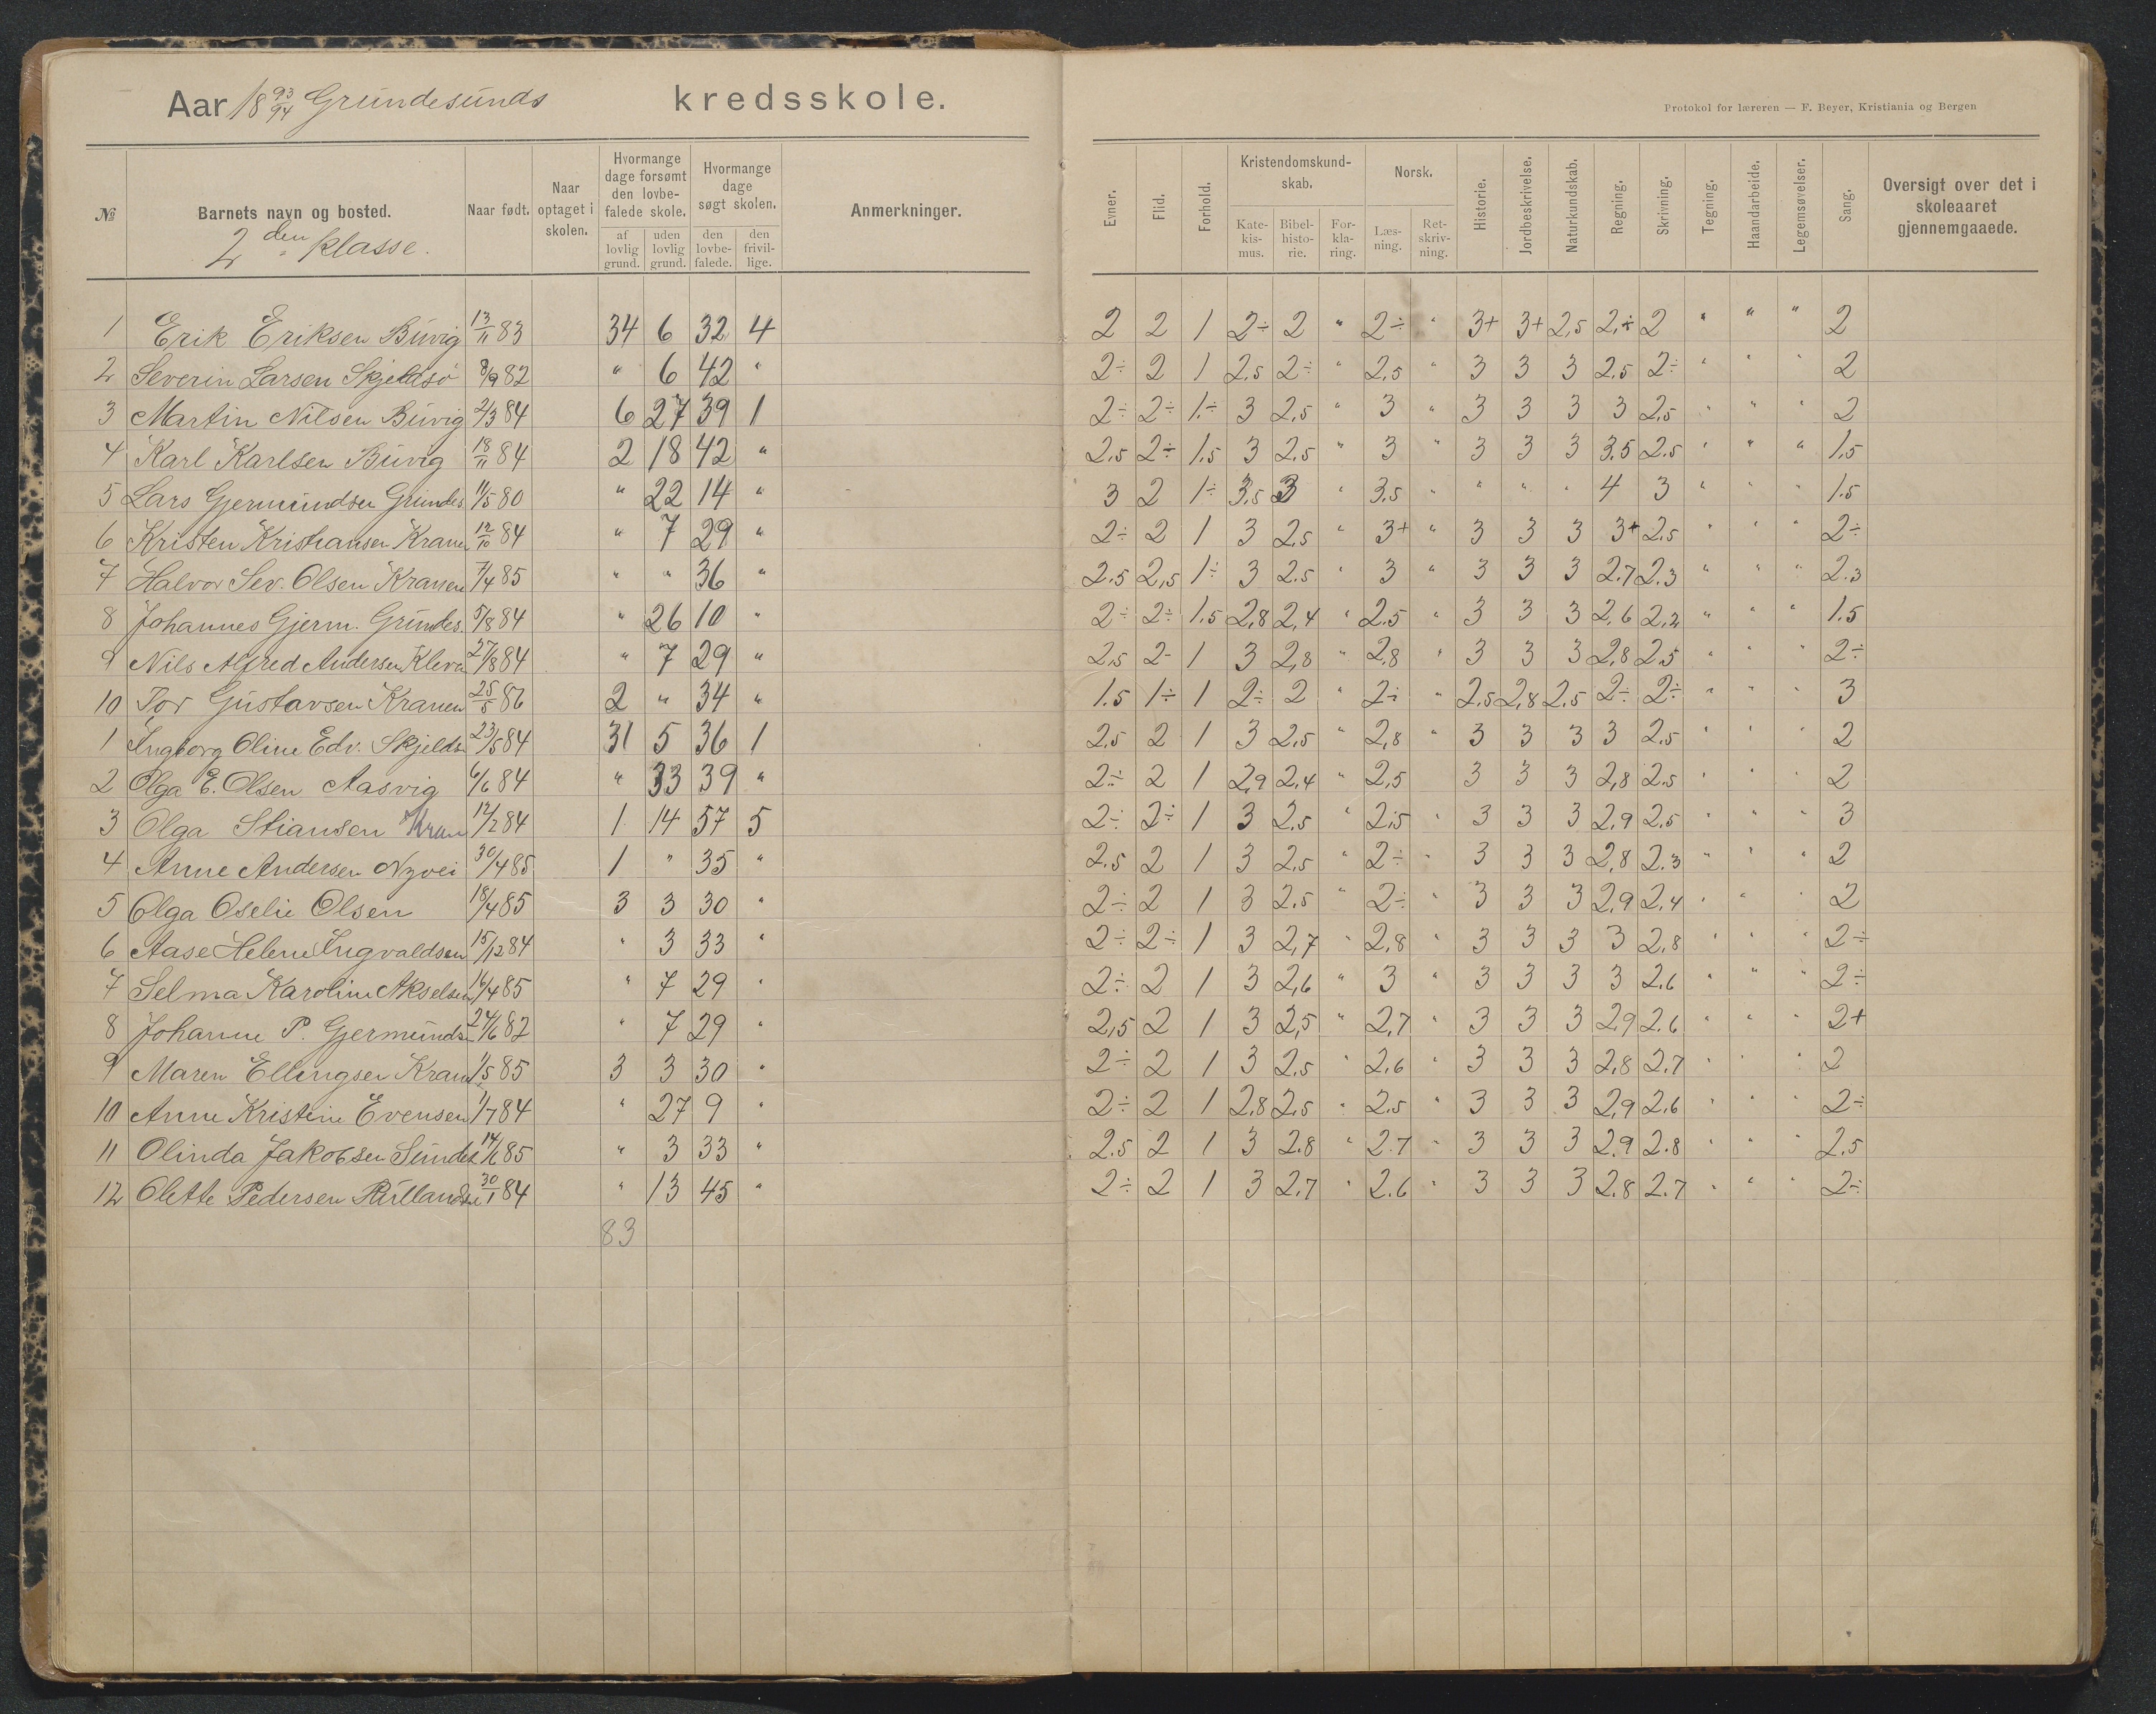 Aar 18 93/94 Grundesunds kredsskole.
Protokol for læreren — F. Beyer, Kristiania og Bergen
№ Barnets navn og bosted. Naar født. Naar optaget i skolen. Hvormange dage forsømt den lovbefalede skole. af lovlig grund. uden lovlig grund. Hvormange dage søgt skolen. den lovbefalede. den frivillige. Anmerkninger. Evner. Flid. Forhold. Kristendomskundskab. Katekismus. Bibelhistorie. Forklaring. Norsk. Læsning. Retskrivning. Historie. Jordbeskrivelse. Naturkundskab. Regning. Skrivning. Tegning. Haandarbeide. Legemsøvelser. Sang. Oversigt over det i skoleaaret gjennemgaaede.
2 den klasse.
1 Erik Eriksen Buvig 13/11 83 34 6 32 4 2 2 1 2÷ 2 " 2÷ " 3+ 3+ 2,5 2,÷ 2 " " " 2
2 Severin Larsen Skjeldsö 8/9 82 " 6 42 " 2÷ 2 1 2,5 2÷ " 2,5 " 3 3 3 2,5 2÷ " " " 2
3 Martin Nilsen Buvig 2/3 84 6 27 39 1 2÷ 2÷ 1÷ 3 2,5 " 3 " 3 3 3 3 2,5 " " " 2
4 Karl Karlsen Buvig 18/11 84 2 18 42 " 2,5 2÷ 1,5 3 2,5 " 3 " 3 3 3 3,5 2,5 " " " 1,5
5 Lars Gjermundsen Grundes. 11/5 80 " 22 14 " 3 2 1÷ 3,5 3 " 3,5 " " " " 4 3 " " " 1,5
6 Kristen Kristiansen Kranen 12/10 84 " 7 29 " 2÷ 2 1 3 2,5 " 3+ " 3 3 3 3+ 2,5 " " " 2÷
7 Halvor Sev. Olsen Kranen 7/4 85 " " 36 " 2,5 2,5 1÷ 3 2,5 " 3 " 3 3 3 2,7 2,3 " " " 2,3
8 Johannes Gjerm. Grundes. 5/8 84 " 26 10 " 2÷ 2÷ 1,5 2,8 2,4 " 2,5 " 3 3 3 2,6 2,2 " " " 1,5
9 Nils Alfred Andersen Kleva 27/8 84 " 7 29 " 2,5 2- 1 3 2,8 " 2,8 " 3 3 3 2,8 2,5 " " " 2÷
10 Tor Gustavsen Kranen 25/5 86 2 " 34 " 1.5 1÷ 1 2÷ 2 " 2÷ " 2,5 2,8 2,5 2÷ 2÷ " " " 3
1 Ingborg Oline Edv. Skjelds 23/5 84 31 5 36 1 2,5 2 1 3 2,5 " 2,8 " 3 3 3 3 2,5 " " " 2
2 Olga E. Olsen Aasvig 6/6 84 " 33 39 " 2÷ 2 1 2,9 2,4 " 2,5 3 3 3 2,8 2,5 " " " 2
3 Olga Stiansen Kran 12/2 84 1 14 57 5 2÷ 2÷ 1 3 2,5 " 2,5 " 3 3 3 2,9 2,5 " " " 3
4 Anne Andersen Nyvei 30/4 85 1 " 35 " 2,5 2 1 3 2,5 " 2÷ " 3 3 3 2,8 2,3 " " " 2
5 Olga Oselie Olsen 18/4 85 3 3 30 " 2÷ 2 1 3 2,5 " 2÷ " 3 3 3 2,9 2,4 " " " 2
6 Aase Helene Ingvaldsen 15/12 84 " 3 33 " 2÷ 2÷ 1 3 2,7 " 2,8 " 3 3 3 3 2,8 " " " 2÷
7 Selma Karoline Akselsen 16/4 85 " 7 29 " 2÷ 2 1 3 2,6 " 3 " 3 3 3 3 2,6 " " " 2÷
8 Johanne P. Gjermunds 24/6 82 " 7 29 " 2,5 2 1 3 2,5 " 2,7 " 3 3 3 2,9 2,6 " " " 2+
9 Maren Ellingsen Kran 1/5 85 3 3 30 " 2÷ 2 1 3 2,5 " 2,6 " 3 3 3 2,8 2,7 " " " 2
10 Anne Kristine Evensen 1/7 84 " 27 9 " 2÷ 2 1 2,8 2,5 " 2,5 " 3 3 3 2,9 2,6 " " " 2÷
11 Olinda Jakobsen Sundet 14/6 85 " 3 33 " 2,5 2 1 3 2,8 " 2,7 " 3 3 3 2,9 2,8 " " " 2,5
12 Olette Pedersen 30/1 84 " 13 45 " 2÷ 2 1 3 2,7 " 2,6 " 3 3 3 2,8 2,7 " " " 2÷
83